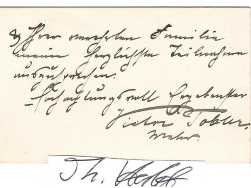 Ihrer verehrten Familie
meine herzlichste Teilnahme
auszusprechen.
Hochachtungsvoll Ergebenster
Victor Tobler
Maler.
Th.